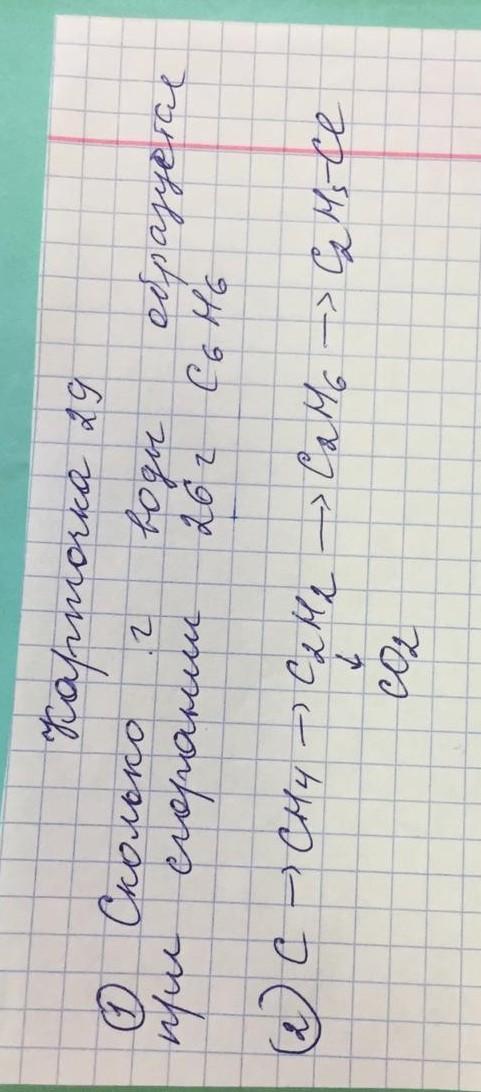 Карточка 29
① Сколько г воды образуется
при сгорании 26 г C₆H₆
② C → CH₄ → C₂H₂ → C₂H₆ → C₂H₅-Cl
↓
CO₂